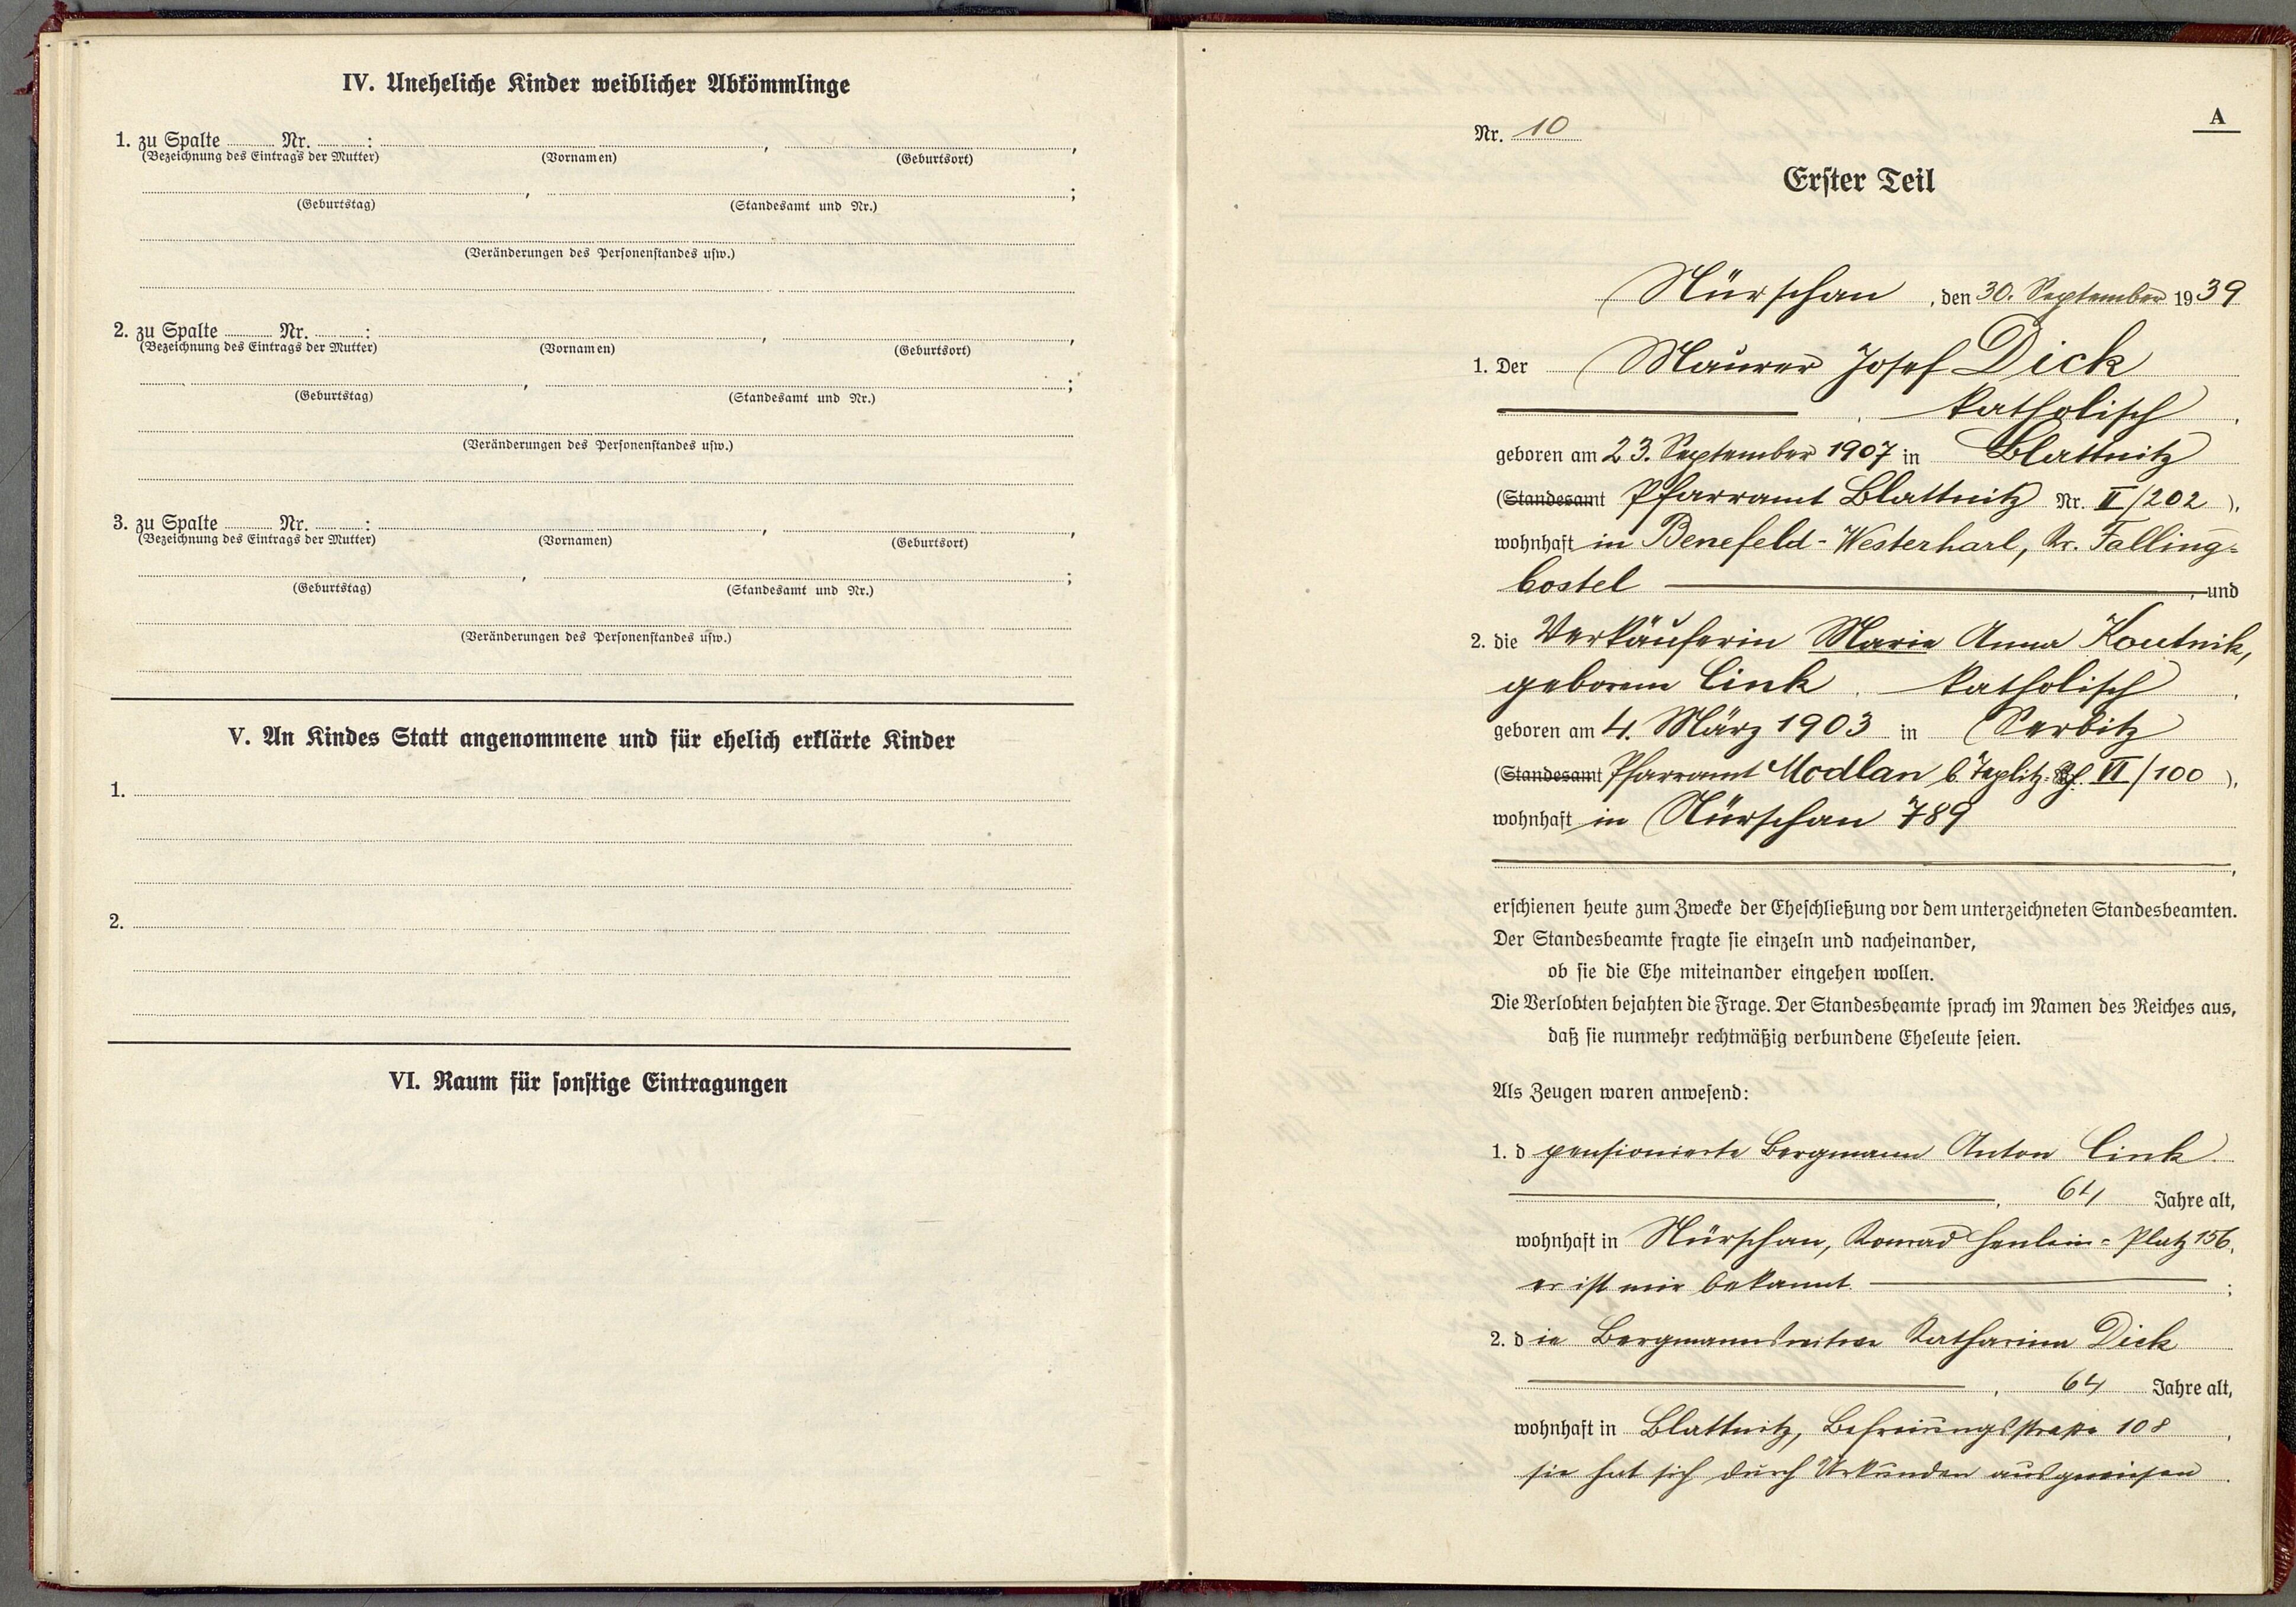 IV. Uneheliche Kinder weiblicher Abkömmlinge
1. zu Spalte ........ Nr. ........:
(Bezeichnung des Eintrags der Mutter) (Vornamen) , (Geburtsort) ,
(Geburtstag) , (Standesamt und Nr.) ;
(Veränderungen des Personenstandes usw.)
2. zu Spalte ........ Nr. ........:
(Bezeichnung des Eintrags der Mutter) (Vornamen) , (Geburtsort) ,
(Geburtstag) , (Standesamt und Nr.) ;
(Veränderungen des Personenstandes usw.)
3. zu Spalte ........ Nr. ........:
(Bezeichnung des Eintrags der Mutter) (Vornamen) , (Geburtsort) ,
(Geburtstag) , (Standesamt und Nr.) ;
(Veränderungen des Personenstandes usw.)
V. An Kindes Statt angenommene und für ehelich erklärte Kinder
1.
2.
VI. Raum für sonstige Eintragungen
A
Nr. 10
Erster Teil
Nürschan , den 30. September 1939
1. Der Maurer Josef Dick
, katholisch ,
geboren am 23. September 1907 in Blattnitz
(Standesamt Pfarramt Blattnitz Nr. II/202 ),
wohnhaft in Benefeld-Westerharl, Kr. Falling-
bostel , und
2. die Verkäuferin Marie Anna Koutnik,
geborene Cink , katholisch ,
geboren am 4. März 1903 in Serbitz
(Standesamt Pfarramt Modlan b. Teplitz-Sch. VI/100 ),
wohnhaft in Nürschan 789
,
erschienen heute zum Zwecke der Eheschließung vor dem unterzeichneten Standesbeamten.
Der Standesbeamte fragte sie einzeln und nacheinander,
ob sie die Ehe miteinander eingehen wollen.
Die Verlobten bejahten die Frage. Der Standesbeamte sprach im Namen des Reiches aus,
daß sie nunmehr rechtmäßig verbundene Eheleute seien.
Als Zeugen waren anwesend:
1. d pensionierte Bergmann Anton Cink
, 64 Jahre alt,
wohnhaft in Nürschan, Konrad Henlein-Platz 156,
er ist mir bekannt. ;
2. die Bergmannswitwe Katharina Dick
, 64 Jahre alt,
wohnhaft in Blattnitz, Befreiungsstraße 108 ,
sie hat sich durch Urkunden ausgewiesen .